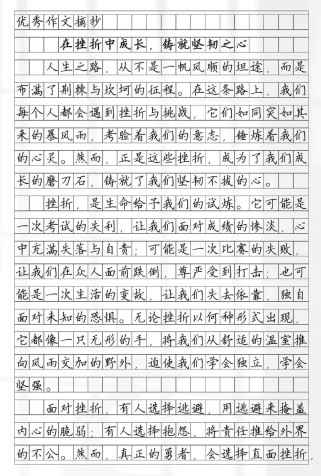 优秀作文摘抄
在挫折中成长，铸就坚韧之心
人生之路，从不是一帆风顺的坦途，而是
布满了荆棘与坎坷的征程。在这条路上，我们
每个人都会遇到挫折与挑战，它们如同突如其
来的暴风雨，考验着我们的意志，锤炼着我们
的心灵。然而，正是这些挫折，成为了我们成
长的磨刀石，铸就了我们坚韧不拔的心。
挫折，是生命给予我们的试炼。它可能是
一次考试的失利，让我们面对成绩的惨淡，心
中充满失落与自责；可能是一次比赛的失败，
让我们在众人面前跌倒，尊严受到打击；也可
能是一次生活的变故，让我们失去依靠，独自
面对未知的恐惧。无论挫折以何种形式出现，
它都像一只无形的手，将我们从舒适的温室推
向风雨交加的野外，迫使我们学会独立，学会
坚强。
面对挫折，有人选择逃避，用逃避来掩盖
内心的脆弱；有人选择抱怨，将责任推给外界
的不公。然而，真正的勇者，会选择直面挫折，